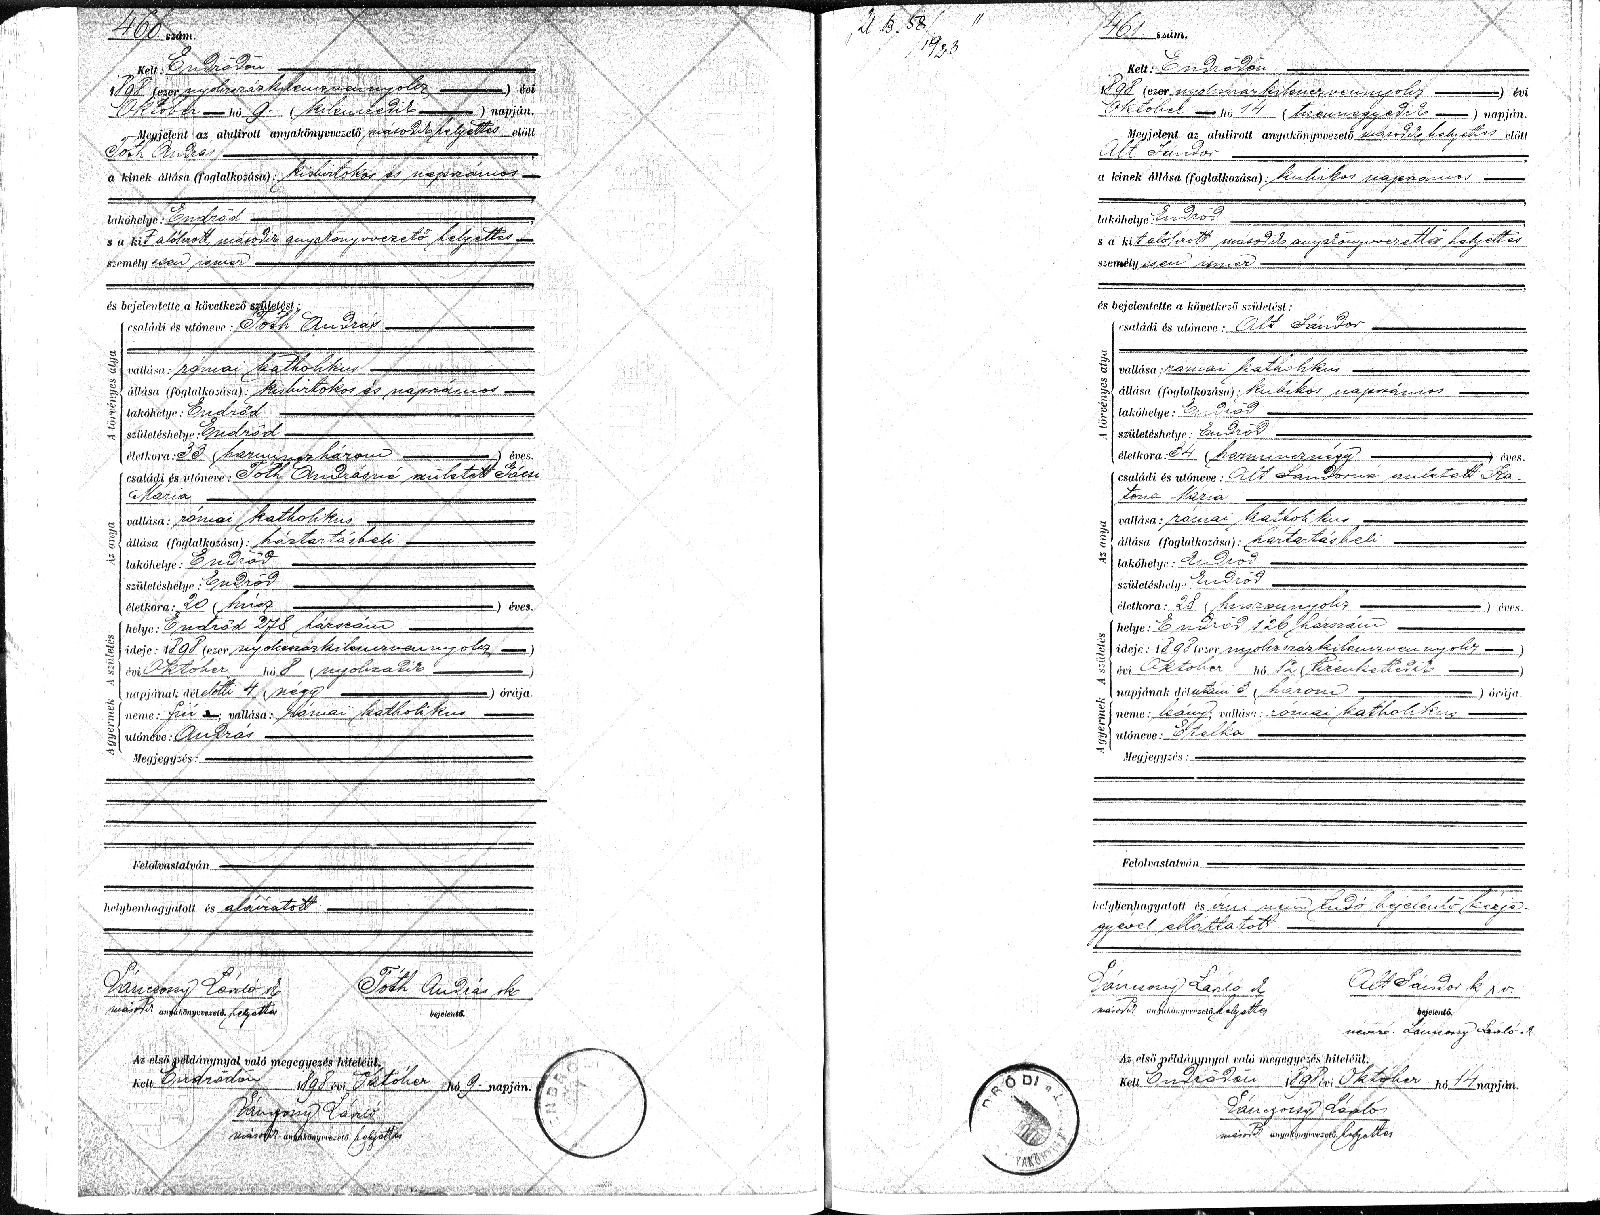 460 szám.
Kelt: Endrődön
1898 (ezer nyolczszázkilenczvennyolcz) évi
Október hó 9. (kilenczedik) napján.
Megjelent az alulirott anyakönyvvezető második helyettes előtt
Tóth András
a kinek állása (foglalkozása): kisbirtokos és napszámos
lakóhelye: Endrőd
s a kit alólirott, második anyakönyvvezető helyettes
személyesen ismer
és bejelentette a következő születést:
A törvényes atya
családi és utóneve: Tóth András
vallása: római katholikus
állása (foglalkozása): kisbirtokos és napszámos
lakóhelye: Endrőd
születéshelye: Endrőd
életkora: 33 (harminczhárom) éves.
Az anya
családi és utóneve: Tóth Andrásné született Gácsi
Mária
vallása: római katholikus
állása (foglalkozása): háztartásbeli
lakóhelye: Endrőd
születéshelye: Endrőd
életkora: 20 (húsz) éves.
A születés
helye: Endrőd 278 házszám
ideje: 1898 (ezer nyolczszázkilenczvennyolcz)
évi Október hó 8 (nyolczadik)
napjának délelőtti 4 (négy) órája.
A gyermek
neme: fiú; vallása: római katholikus
utóneve: András
Megjegyzés:
Felolvastatván
helybenhagyatott és aláiratott
László Tóth András sk
második anyakönyvvezető helyettes bejelentő.
Az első példánynyal való megegyezés hiteléül.
Kelt Endrődön 1898 évi Október hó 9. napján.
László
második anyakönyvvezető helyettes
1923
461 szám.
Kelt: Endrődön
1898 (ezer nyolczszázkilenczvennyolcz) évi
Október hó 14 (tizennegyedik) napján.
Megjelent az alulirott anyakönyvvezető második helyettes előtt
Alt Sándor
a kinek állása (foglalkozása): kubikos napszámos
lakóhelye: Endrőd
s a kit alólirott, második anyakönyvvezető helyettes
személyesen ismer
és bejelentette a következő születést:
A törvényes atya
családi és utóneve: Alt Sándor
vallása: római katholikus
állása (foglalkozása): kubikos napszámos
lakóhelye: Endrőd
születéshelye: Endrőd
életkora: 34 (harmincznégy) éves.
Az anya
családi és utóneve: Alt Sándorné született Ka-
tona Mária
vallása: római katholikus
állása (foglalkozása): háztartásbeli
lakóhelye: Endrőd
születéshely: Endrőd
életkora: 28 (huszonnyolcz) éves.
A születés
helye: Endrőd 126 házszám
ideje: 1898 (ezer nyolczszázkilenczvennyolcz)
évi Október hó 12 (tizenkettedik)
napjának délutáni 3 (három) órája
A gyermek
neme: leány; vallása: római katholikus
utóneve: Etelka
Megjegyzés:
Felolvastatván
helybenhagyatott és irni nem tudó bejelentő kézje-
gyével elláttatott
László Alt Sándor
második anyakönyvvezető helyettes bejelentő.
László
Az első példánynyal való megegyezés hiteléül.
Kelt Endrődön 1898 évi Október hó 14 napján.
László
második anyakönyvvezető helyettes